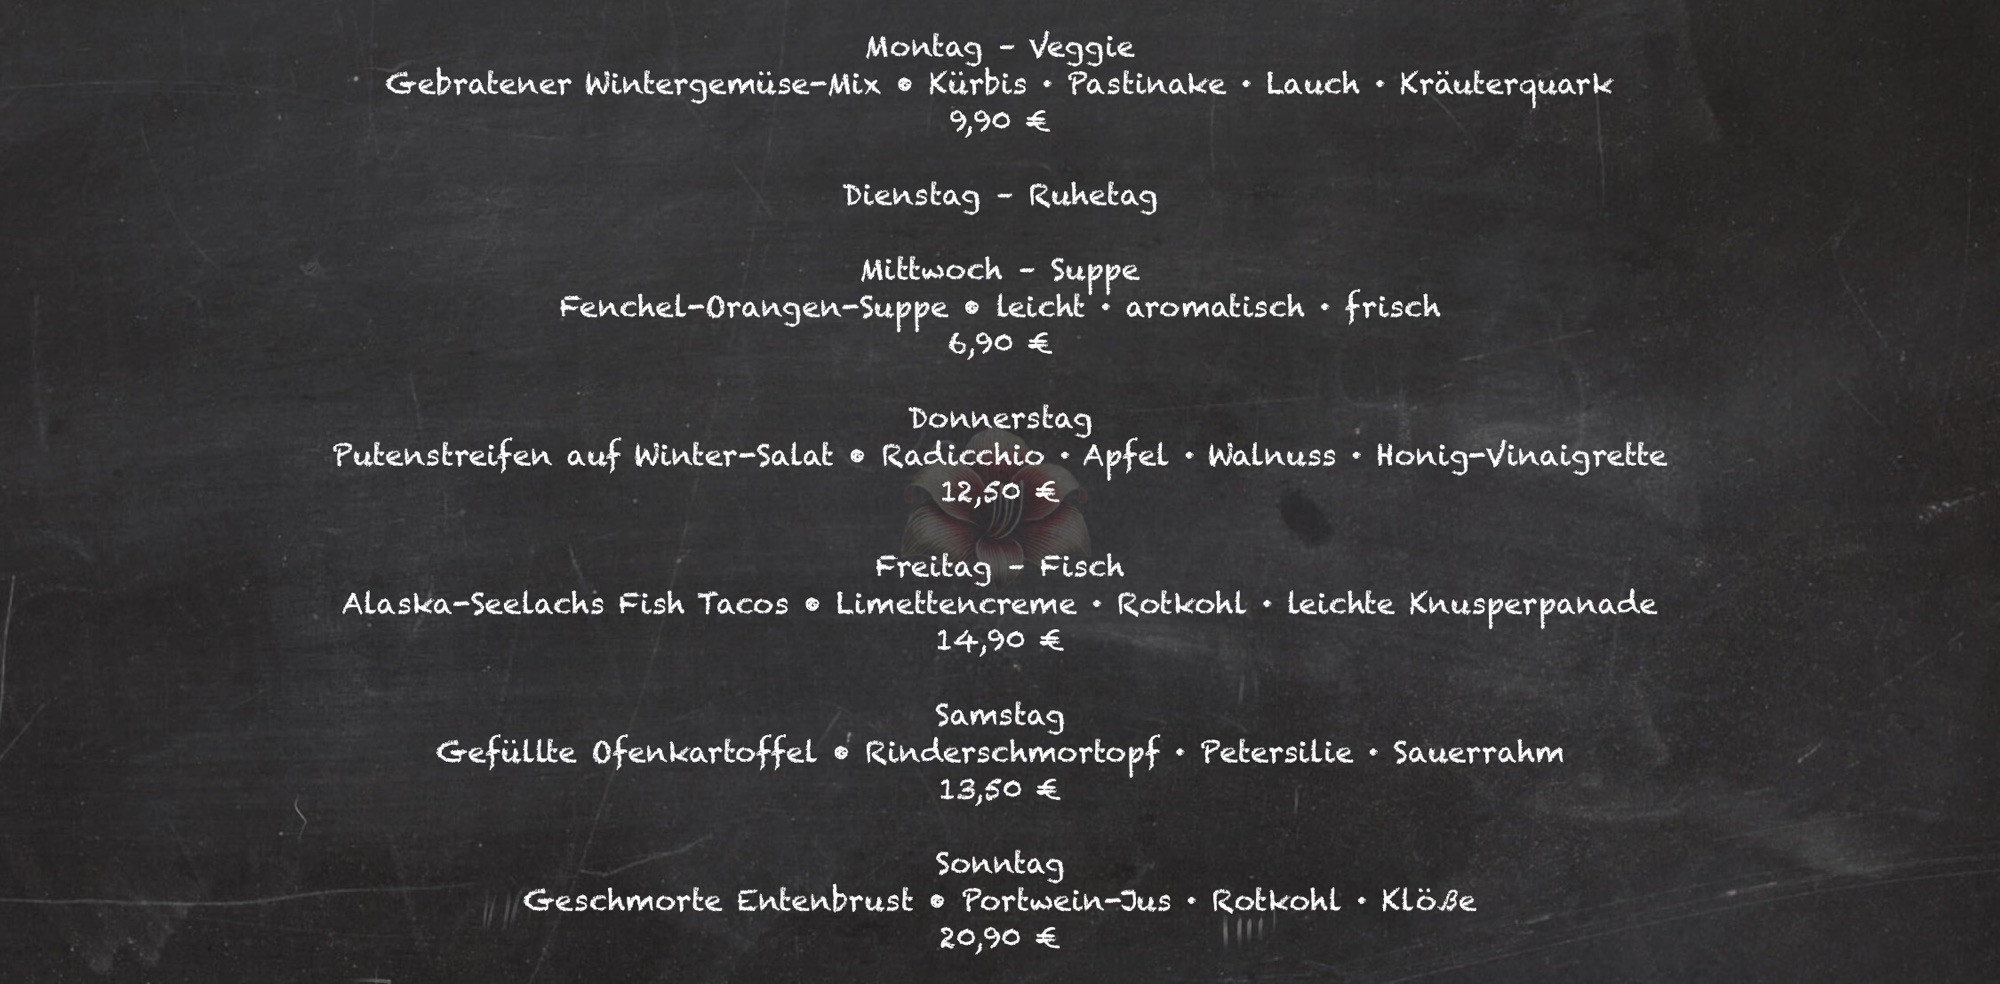 Montag - Veggie
Gebratener Wintergemüse-Mix • Kürbis • Pastinake • Lauch • Kräuterquark
9,90 €
Dienstag - Ruhetag
Mittwoch - Suppe
Fenchel-Orangen-Suppe • leicht • aromatisch • frisch
6,90 €
Donnerstag
Putenstreifen auf Winter-Salat • Radicchio • Apfel • Walnuss • Honig-Vinaigrette
12,50 €
Freitag - Fisch
Alaska-Seelachs Fish Tacos • Limettencreme • Rotkohl • leichte Knusperpanade
14,90 €
Samstag
Gefüllte Ofenkartoffel • Rinderschmortopf • Petersilie • Sauerrahm
13,50 €
Sonntag
Geschmorte Entenbrust • Portwein-Jus • Rotkohl • Klöße
20,90 €